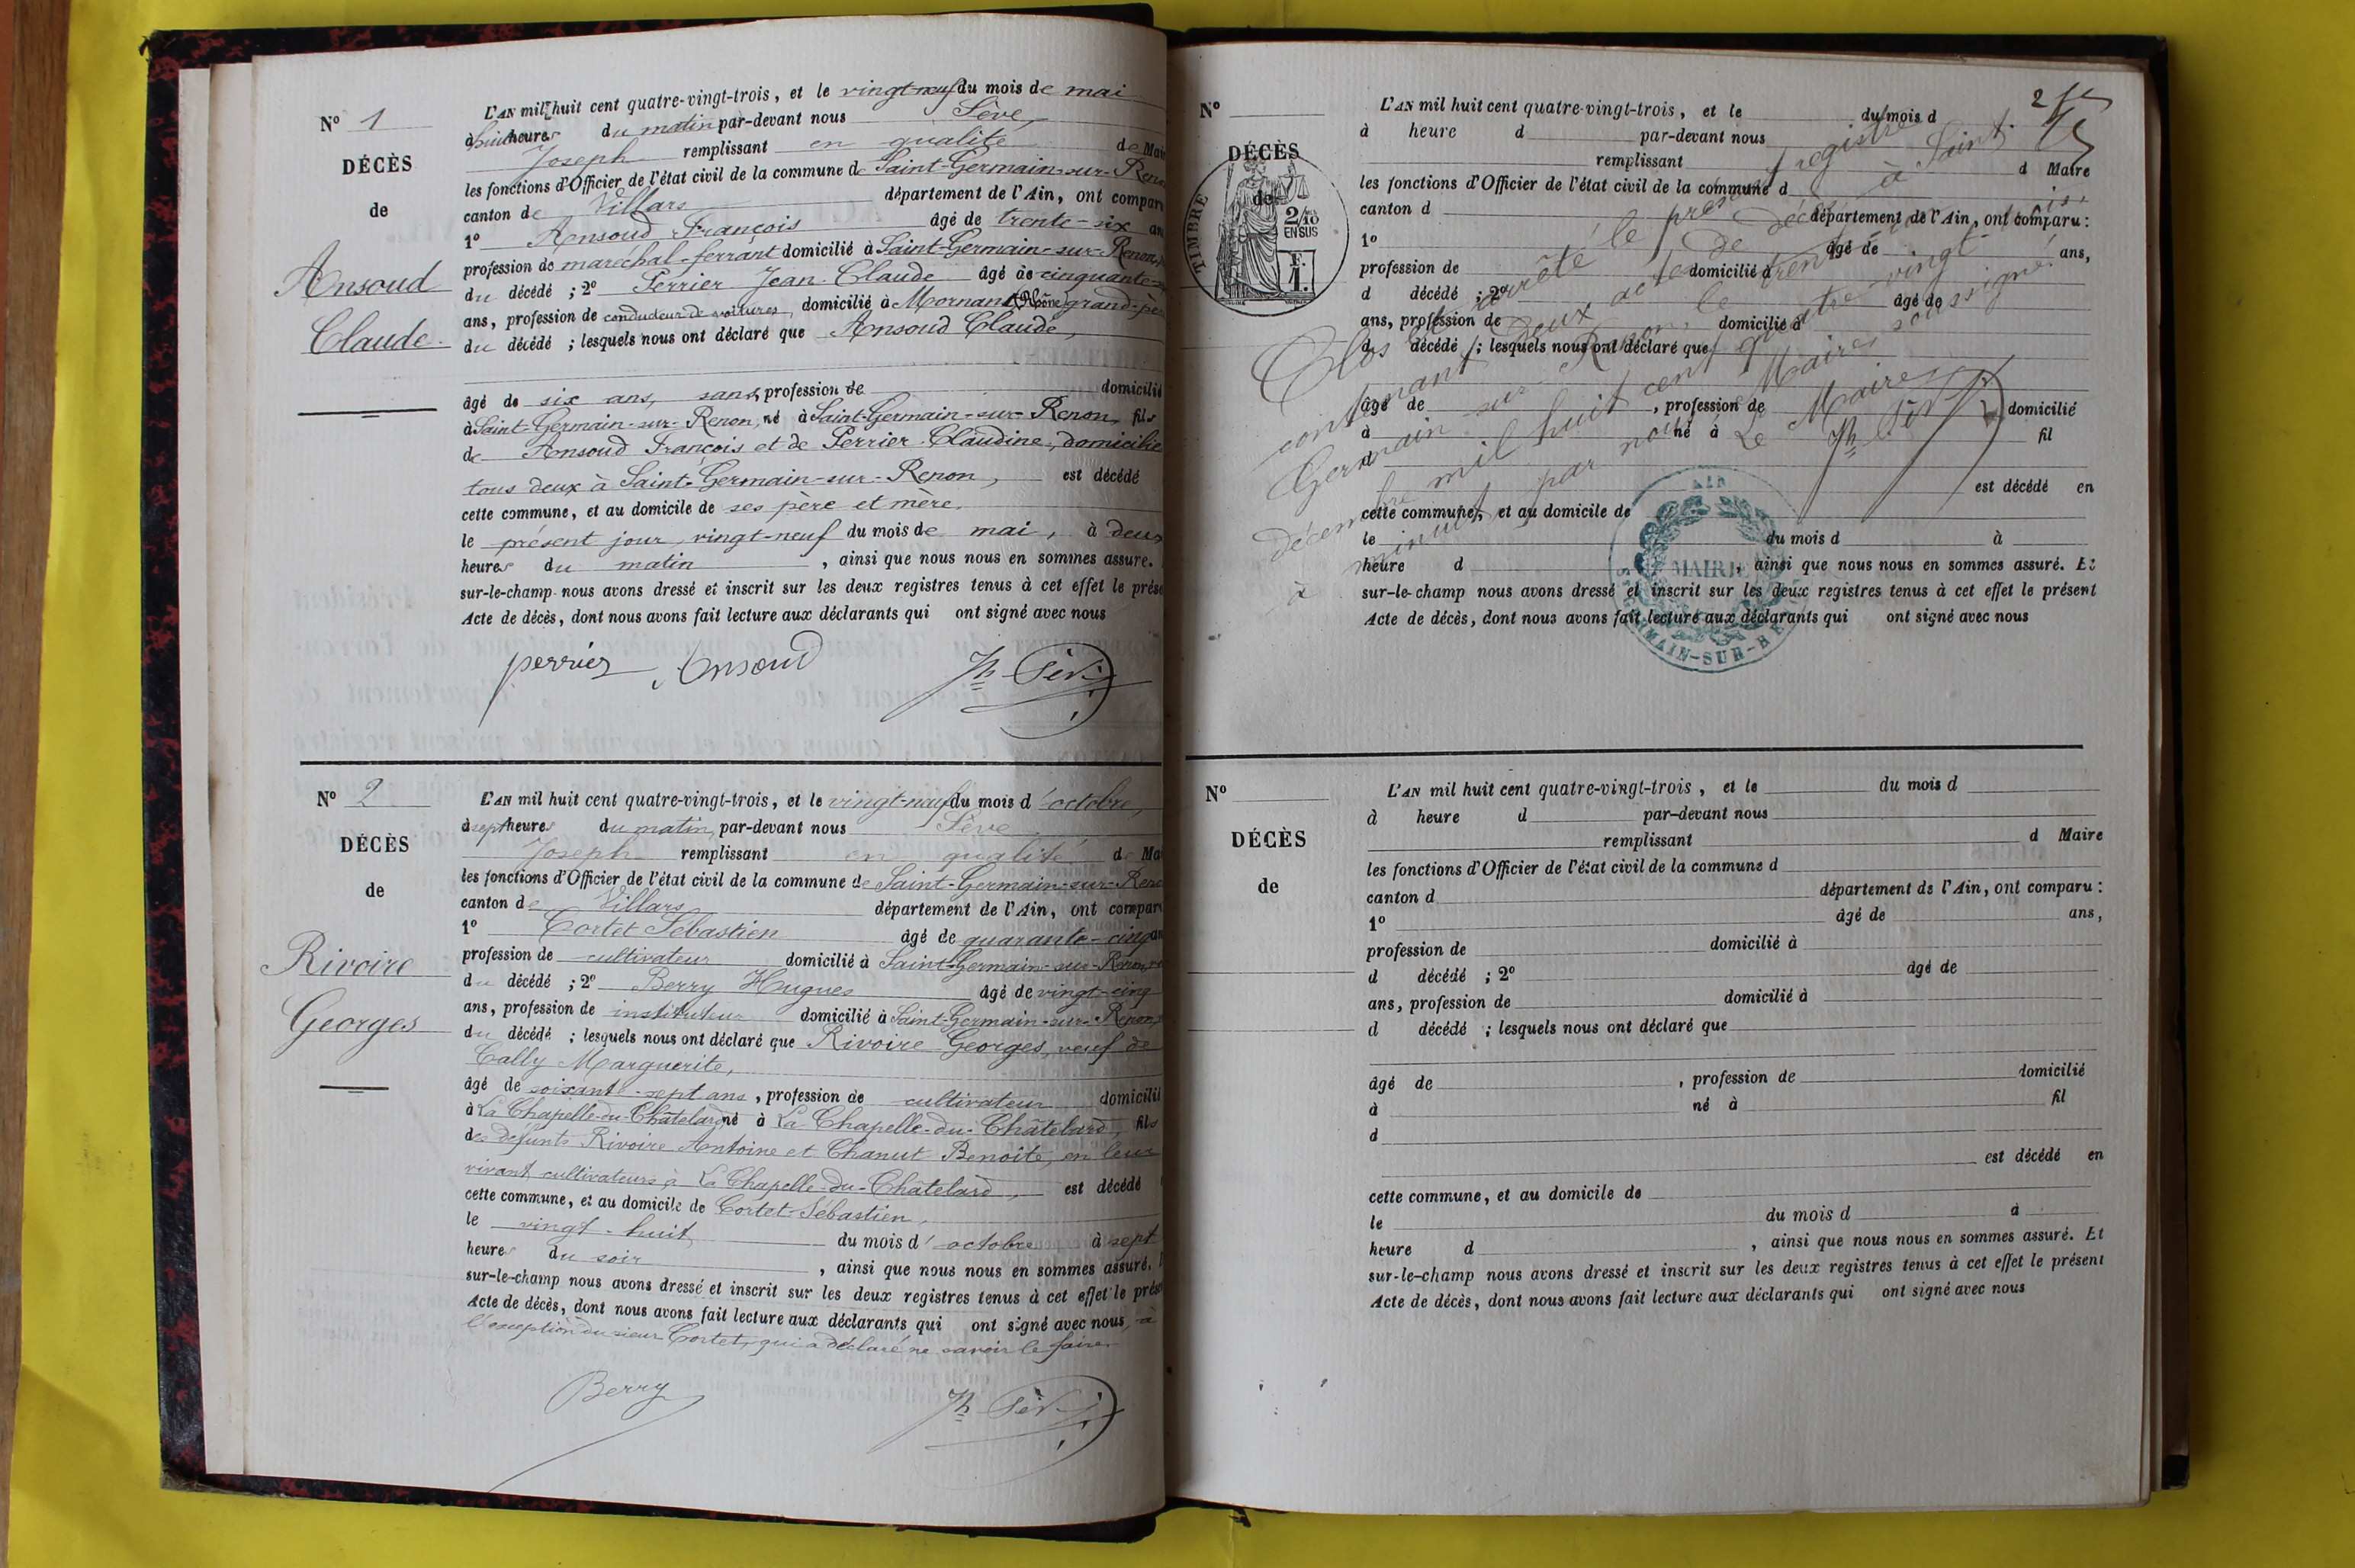 N° 1
DÉCÈS
de
Ansoud
Claude.
L'AN mil huit cent quatre-vingt-trois, et le vingt-neuf du mois de mai
à huit heures du matin par-devant nous Sève,
Joseph remplissant en qualité de Mai
les fonctions d'Officier de l'état civil de la commune de Saint-Germain-sur-Reno
canton de Villars département de l'Ain, ont compar
1° Ansoud François âgé de trente-six an
profession de maréchal-ferrant domicilié à Saint-Germain-sur-Renon,
du décédé ; 2° Perrier Jean-Claude âgé de cinquante-
ans, profession de conducteur de voitures, domicilié à Mornant (Rhône) grand-pè
du décédé ; lesquels nous ont déclaré que Ansoud Claude,
âgé de six ans, sans profession de domicilié
à Saint-Germain-sur-Renon, né à Saint-Germain-sur-Renon, fils
de Ansoud François et de Perrier Claudine, domicilié
tous deux à Saint-Germain-sur-Renon, est décédé
cette commune, et au domicile de ses père et mère.
le présent jour, vingt-neuf du mois de mai, à deux
heures du matin, ainsi que nous nous en sommes assuré.
sur-le-champ nous avons dressé et inscrit sur les deux registres tenus à cet effet le prése
Acte de décès, dont nous avons fait lecture aux déclarants qui ont signé avec nous
perrier Ansoud Jh Sève
N° 2
DÉCÈS
de
Rivoire
Georges
L'AN mil huit cent quatre-vingt-trois, et le vingt-neuf du mois d'octobre,
à sept heures du matin, par-devant nous Sève
Joseph remplissant en qualité de Ma
les fonctions d'Officier de l'état civil de la commune de Saint-Germain-sur-Reno
canton de Villars département de l'Ain, ont compar
1° Cortet Sébastien âgé de quarante-cinq an
profession de cultivateur domicilié à Saint-Germain-sur-Renon,
du décédé ; 2° Berry Hugues âgé de vingt-cinq
ans, profession de instituteur domicilié à Saint-Germain-sur-Renon,
du décédé ; lesquels nous ont déclaré que Rivoire Georges, veuf de
Cally Marguerite,
âgé de soixante-sept ans, profession de cultivateur domicilié
à La Chapelle-du-Châtelard né à La Chapelle-du-Châtelard, fils
des défunts Rivoire Antoine et Chanut Benoîte, en leur
vivant cultivateurs à La Chapelle-du-Châtelard, est décédé
cette commune, et au domicile de Cortet Sébastien,
le vingt-huit du mois d'octobre à sept
heures du soir, ainsi que nous nous en sommes assuré.
sur-le-champ nous avons dressé et inscrit sur les deux registres tenus à cet effet le prés
Acte de décès, dont nous avons fait lecture aux déclarants qui ont signé avec nous, à
l'exception du sieur Cortet, qui a déclaré ne savoir le faire.
Berry Jh Sève
2
N°
DÉCÈS
de
TIMBRE
2/10
EN SUS
F.
1.
L'AN mil huit cent quatre-vingt-trois, et le du mois d
à heure d par-devant nous
remplissant d Maire
les fonctions d'Officier de l'état civil de la commune d
canton d département de l'Ain, ont comparu :
1° âgé de ans,
profession de domicilié à
d décédé ; 2° âgé de
ans, profession de domicilié à
d décédé ; lesquels nous ont déclaré que
âgé de , profession de domicilié
à né à fil
d
est décédé en
cette commune, et au domicile de
le du mois d à
heure d , ainsi que nous nous en sommes assuré. Et
sur-le-champ nous avons dressé et inscrit sur les deux registres tenus à cet effet le présent
Acte de décès, dont nous avons fait lecture aux déclarants qui ont signé avec nous
Clos et arrêté le présent registre
contenant deux actes de décès à Saint-
Germain-sur-Renon, le trente-un
décembre mil huit cent quatre-vingt-trois,
à minuit par nous Maire soussigné.
Le Maire
Jh Sève
AIN
MAIRIE
ST GERMAIN-SUR-RENON
N°
DÉCÈS
de
L'AN mil huit cent quatre-vingt-trois, et le du mois d
à heure d par-devant nous
remplissant d Maire
les fonctions d'Officier de l'état civil de la commune d
canton d département de l'Ain, ont comparu :
1° âgé de ans,
profession de domicilié à
d décédé ; 2° âgé de
ans, profession de domicilié à
d décédé ; lesquels nous ont déclaré que
âgé de , profession de domicilié
à né à fil
d
est décédé en
cette commune, et au domicile de
le du mois d à
heure d , ainsi que nous nous en sommes assuré. Et
sur-le-champ nous avons dressé et inscrit sur les deux registres tenus à cet effet le présent
Acte de décès, dont nous avons fait lecture aux déclarants qui ont signé avec nous